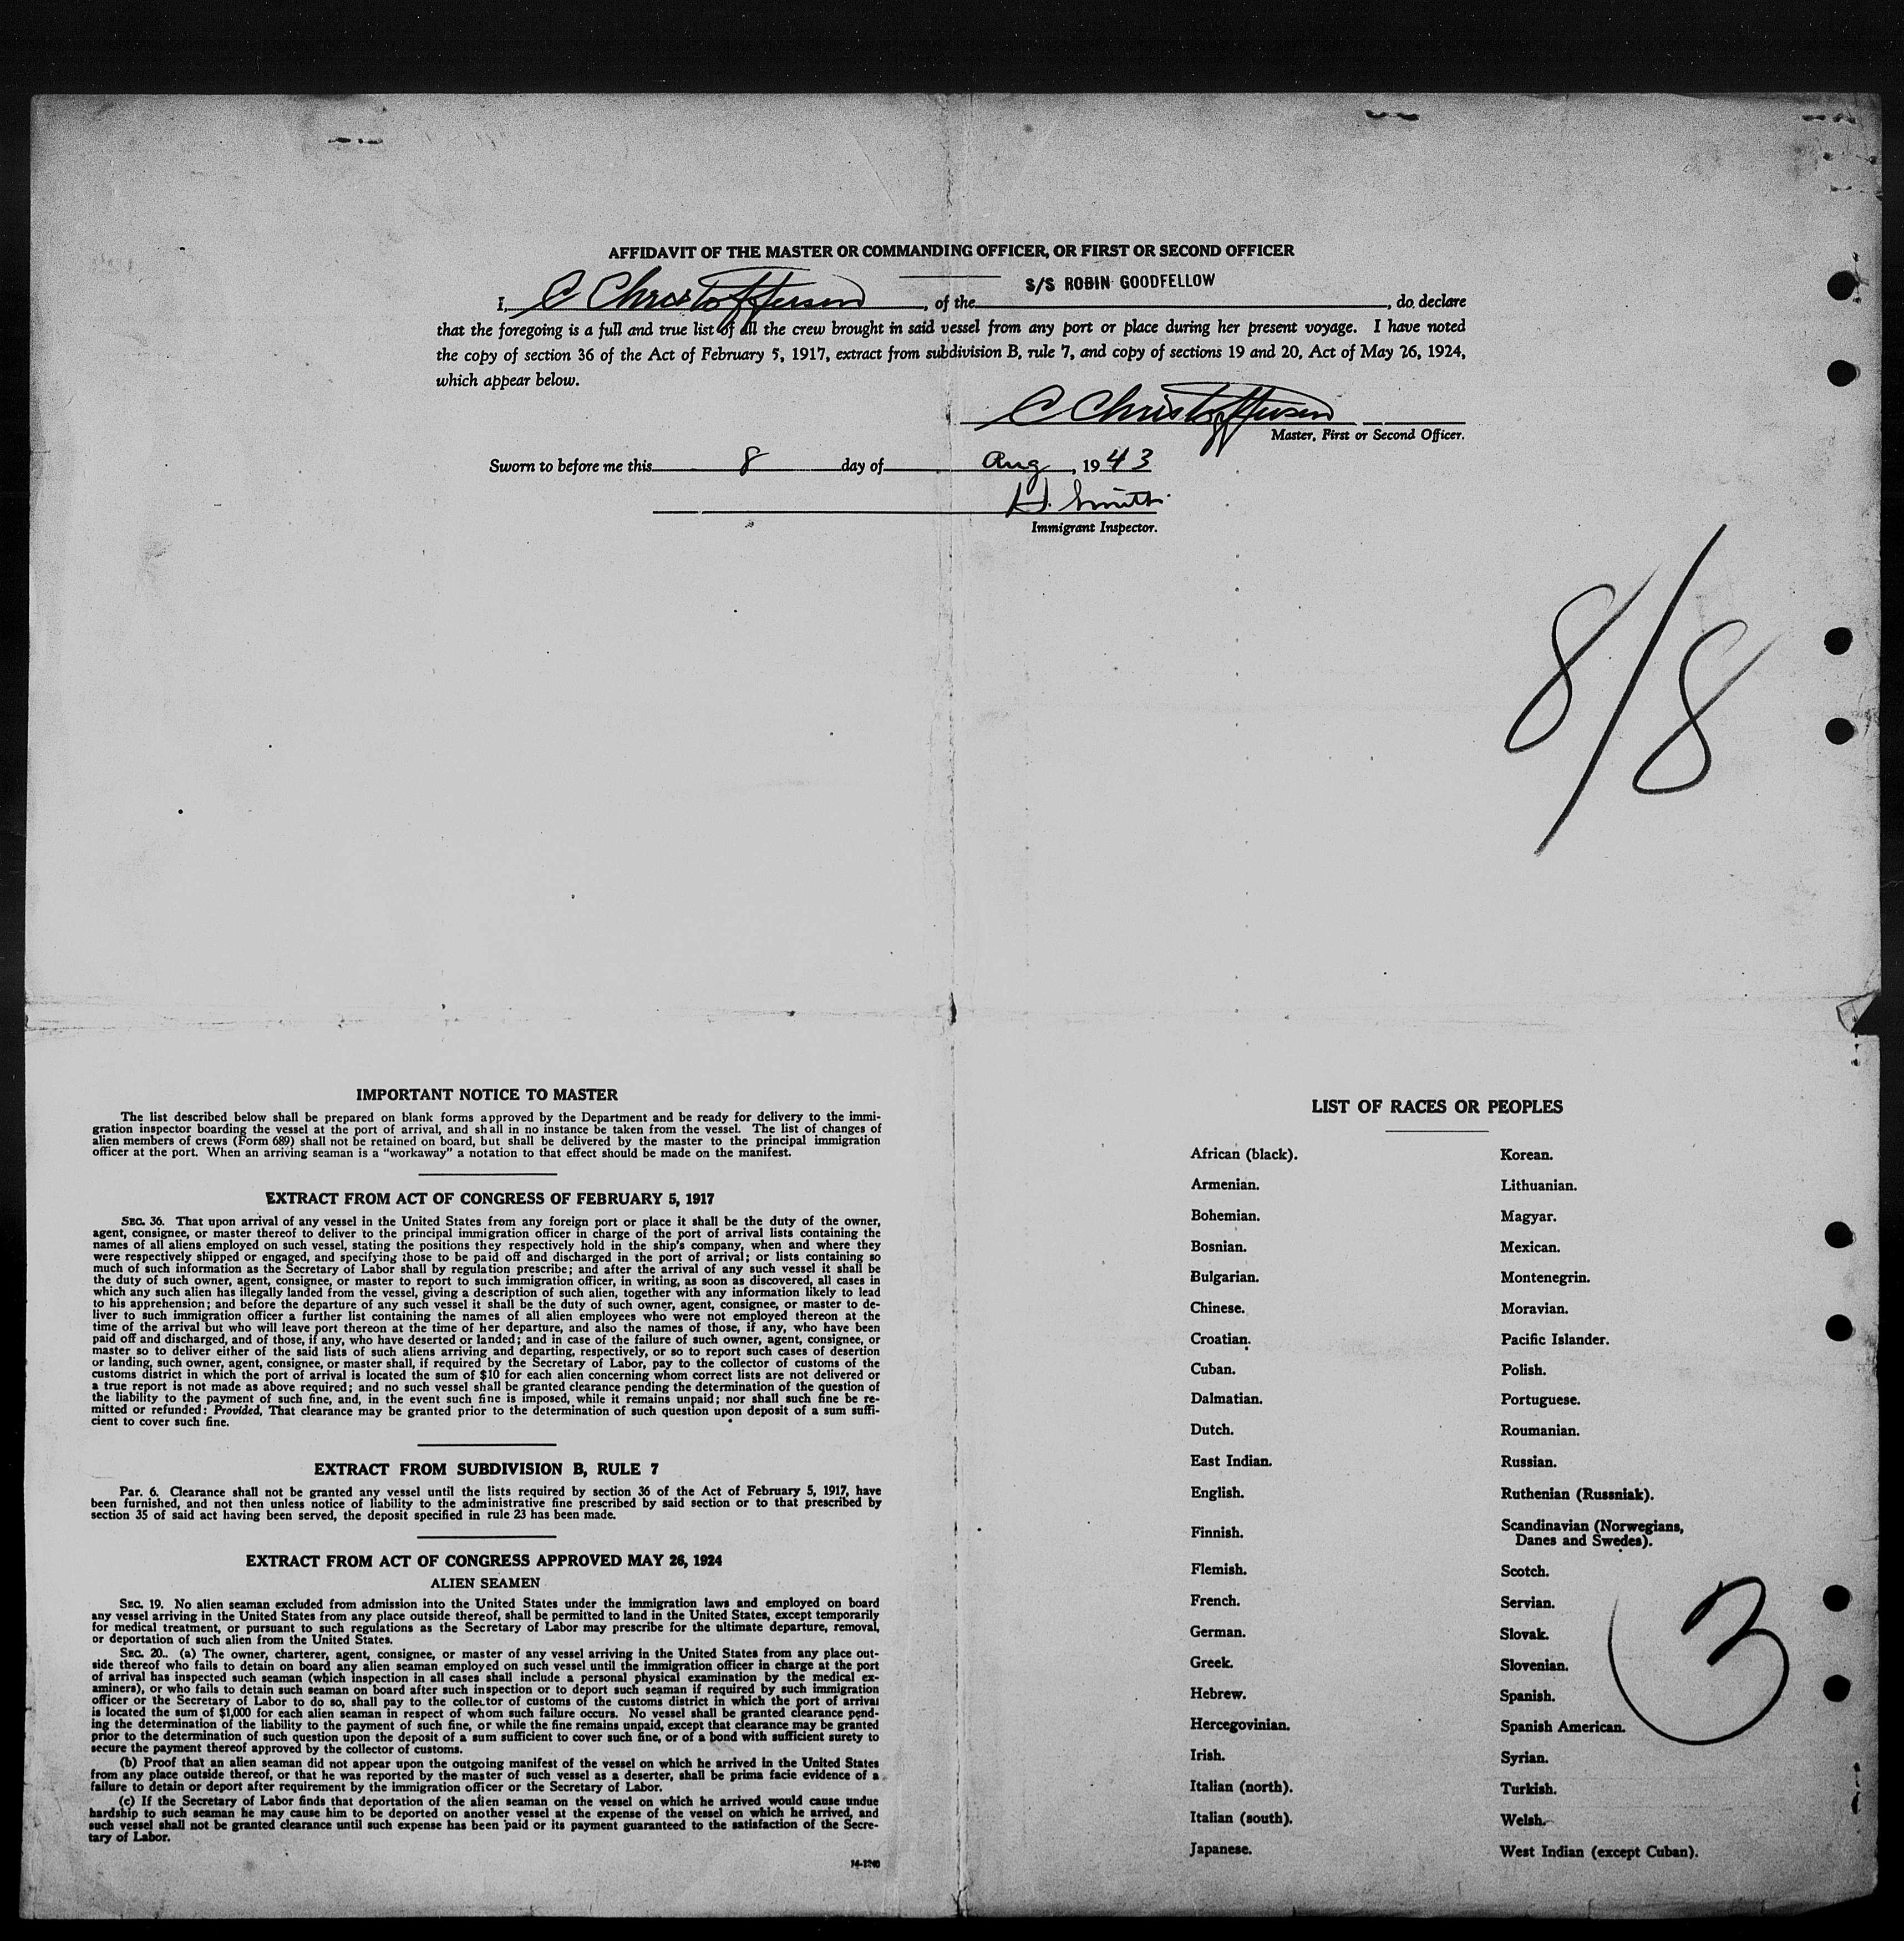 AFFIDAVIT OF THE MASTER OR COMMANDING OFFICER, OR FIRST OR SECOND OFFICER
I, C Christoffersen, of the S/S ROBIN GOODFELLOW, do declare
that the foregoing is a full and true list of all the crew brought in said vessel from any port or place during her present voyage. I have noted
the copy of section 36 of the Act of February 5, 1917, extract from subdivision B, rule 7, and copy of sections 19 and 20, Act of May 26, 1924,
which appear below.
C Christoffersen
Master, First or Second Officer.
Sworn to before me this 8 day of Aug, 1943
H. Smith
Immigrant Inspector.
8/8
IMPORTANT NOTICE TO MASTER
The list described below shall be prepared on blank forms approved by the Department and be ready for delivery to the immi-
gration inspector boarding the vessel at the port of arrival, and shall in no instance be taken from the vessel. The list of changes of
alien members of crews (Form 689) shall not be retained on board, but shall be delivered by the master to the principal immigration
officer at the port. When an arriving seaman is a "workaway" a notation to that effect should be made on the manifest.
EXTRACT FROM ACT OF CONGRESS OF FEBRUARY 5, 1917
SEC. 36. That upon arrival of any vessel in the United States from any foreign port or place it shall be the duty of the owner,
agent, consignee, or master thereof to deliver to the principal immigration officer in charge of the port of arrival lists containing the
names of all aliens employed on such vessel, stating the positions they respectively hold in the ship's company, when and where they
were respectively shipped or engaged, and specifying those to be paid off and discharged in the port of arrival; or lists containing so
much of such information as the Secretary of Labor shall by regulation prescribe; and after the arrival of any such vessel it shall be
the duty of such owner, agent, consignee, or master to report to such immigration officer, in writing, as soon as discovered, all cases in
which any such alien has illegally landed from the vessel, giving a description of such alien, together with any information likely to lead
to his apprehension; and before the departure of any such vessel it shall be the duty of such owner, agent, consignee, or master to de-
liver to such immigration officer a further list containing the names of all alien employees who were not employed thereon at the
time of the arrival but who will leave port thereon at the time of her departure, and also the names of those, if any, who have been
paid off and discharged, and of those, if any, who have deserted or landed; and in case of the failure of such owner, agent, consignee, or
master so to deliver either of the said lists of such aliens arriving and departing, respectively, or so to report such cases of desertion
or landing, such owner, agent, consignee, or master shall, if required by the Secretary of Labor, pay to the collector of customs of the
customs district in which the port of arrival is located the sum of $10 for each alien concerning whom correct lists are not delivered or
a true report is not made as above required; and no such vessel shall be granted clearance pending the determination of the question of
the liability to the payment of such fine, and, in the event such fine is imposed, while it remains unpaid; nor shall such fine be re-
mitted or refunded: Provided, That clearance may be granted prior to the determination of such question upon deposit of a sum suffi-
cient to cover such fine.
EXTRACT FROM SUBDIVISION B, RULE 7
Par. 6. Clearance shall not be granted any vessel until the lists required by section 36 of the Act of February 5, 1917, have
been furnished, and not then unless notice of liability to the administrative fine prescribed by said section or to that prescribed by
section 35 of said act having been served, the deposit specified in rule 23 has been made.
EXTRACT FROM ACT OF CONGRESS APPROVED MAY 26, 1924
ALIEN SEAMEN
SEC. 19. No alien seaman excluded from admission into the United States under the immigration laws and employed on board
any vessel arriving in the United States from any place outside thereof, shall be permitted to land in the United States, except temporarily
for medical treatment, or pursuant to such regulations as the Secretary of Labor may prescribe for the ultimate departure, removal,
or deportation of such alien from the United States.
SEC. 20. (a) The owner, charterer, agent, consignee, or master of any vessel arriving in the United States from any place out-
side thereof who fails to detain on board any alien seaman employed on such vessel until the immigration officer in charge at the port
of arrival has inspected such seaman (which inspection in all cases shall include a personal physical examination by the medical ex-
aminers), or who fails to detain such seaman on board after such inspection or to deport such seaman if required by such immigration
officer or the Secretary of Labor to do so, shall pay to the collector of customs of the customs district in which the port of arrival
is located the sum of $1,000 for each alien seaman in respect of whom such failure occurs. No vessel shall be granted clearance pend-
ing the determination of the liability to the payment of such fine, or while the fine remains unpaid, except that clearance may be granted
prior to the determination of such question upon the deposit of a sum sufficient to cover such fine, or of a bond with sufficient surety to
secure the payment thereof approved by the collector of customs.
(b) Proof that an alien seaman did not appear upon the outgoing manifest of the vessel on which he arrived in the United States
from any place outside thereof, or that he was reported by the master of such vessel as a deserter, shall be prima facie evidence of a
failure to detain or deport after requirement by the immigration officer or the Secretary of Labor.
(c) If the Secretary of Labor finds that deportation of the alien seaman on the vessel on which he arrived would cause undue
hardship to such seaman he may cause him to be deported on another vessel at the expense of the vessel on which he arrived, and
such vessel shall not be granted clearance until such expense has been paid or its payment guaranteed to the satisfaction of the Secre-
tary of Labor.
14-1240
LIST OF RACES OR PEOPLES
African (black).
Armenian.
Bohemian.
Bosnian.
Bulgarian.
Chinese.
Croatian.
Cuban.
Dalmatian.
Dutch.
East Indian.
English.
Finnish.
Flemish.
French.
German.
Greek.
Hebrew.
Hercegovinian.
Irish.
Italian (north).
Italian (south).
Japanese.
Korean.
Lithuanian.
Magyar.
Mexican.
Montenegrin.
Moravian.
Pacific Islander.
Polish.
Portuguese.
Roumanian.
Russian.
Ruthenian (Russniak).
Scandinavian (Norwegians,
Danes and Swedes).
Scotch.
Servian.
Slovak.
Slovenian.
Spanish.
Spanish American.
Syrian.
Turkish.
Welsh.
West Indian (except Cuban).
3